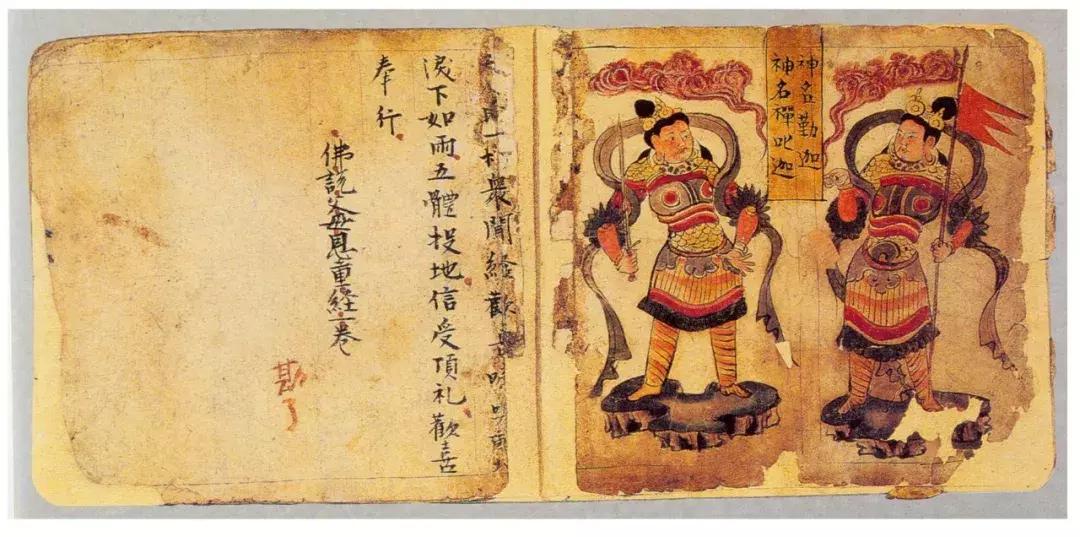 神名勤迦
神名禪叱迦
衆聞經歡
淚下如雨五體投地信受頂礼歡喜
奉行
佛說父母恩重經一卷
勘了